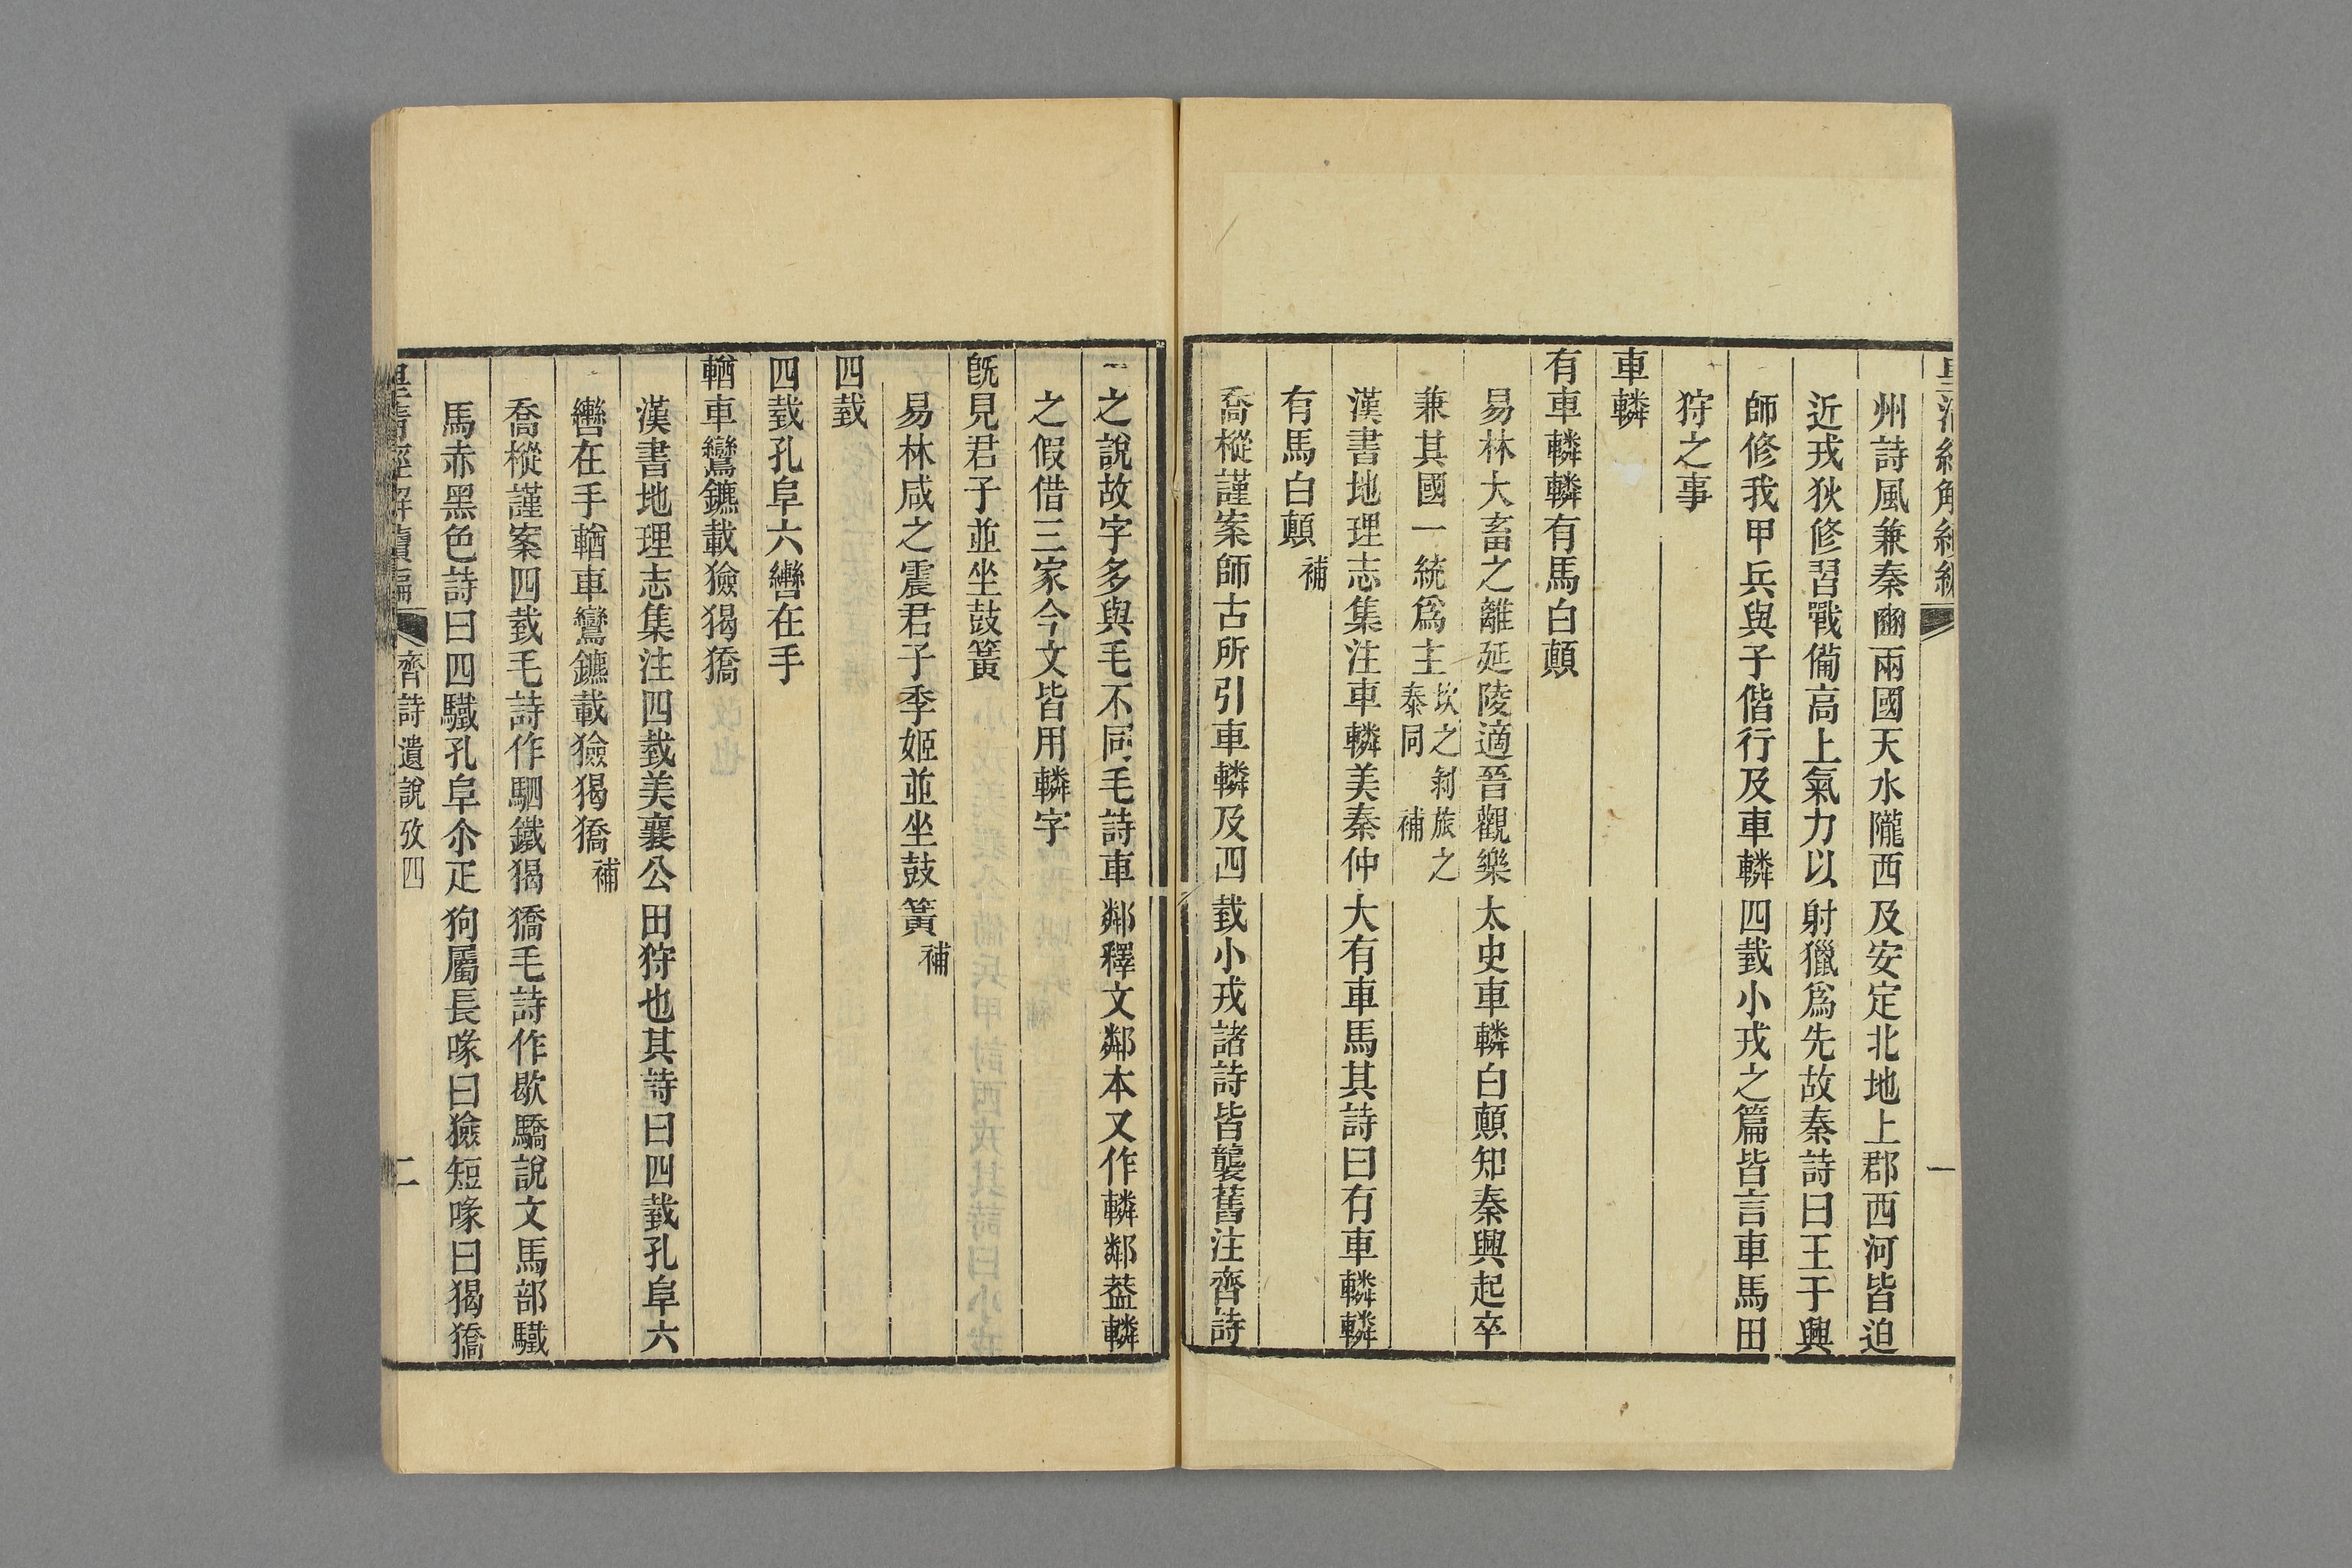 州詩風兼秦豳兩國天水隴西及安定北地上郡西河皆迫
近戎狄修習戰備高上氣力以射獵爲先故秦詩曰王于興
師修我甲兵與子偕行及車轔四臷小戎之篇皆言車馬田
狩之事
車轔
有車轔轔有馬白顛
易林大畜之離延陵適晉觀樂太史車轔白顛知秦興起卒
兼其國一統爲主坎之剝旅之
泰同　補
漢書地理志集注車轔美秦仲大有車馬其詩曰有車轔轔
有馬白顛補
喬樅謹案師古所引車轔及四臷小戎諸詩皆襲舊注齊詩
之說故字多與毛不同毛詩車鄰釋文鄰本又作轔鄰葢轔
之假借三家今文皆用轔字
旣見君子並坐鼓簧
易林咸之震君子季姬並坐鼓簧補
四臷
四臷孔阜六轡在手
輶車鸞鑣載獫猲獢
漢書地理志集注四臷美襄公田狩也其詩曰四臷孔阜六
轡在手輶車鸞鑣載獫猲獢補
喬樅謹案四臷毛詩作駟鐵猲獢毛詩作歇驕說文馬部驖
馬赤黑色詩曰四驖孔阜尒疋狗屬長喙曰獫短喙曰猲獢
皇清經解續編
齊詩遺說攷四
二